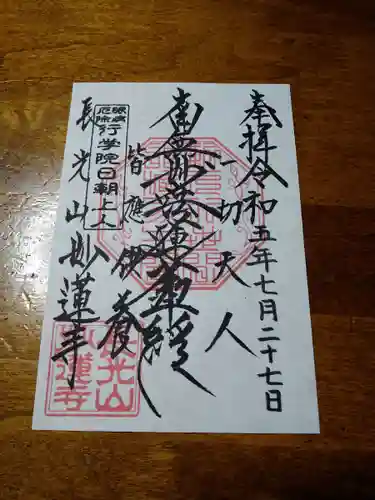 奉拝 令和五年七月二十七日
一切天人
南無妙法蓮華経
皆應供養
厄除
行学院日朝上人
長光山妙蓮寺
長光山
妙蓮寺